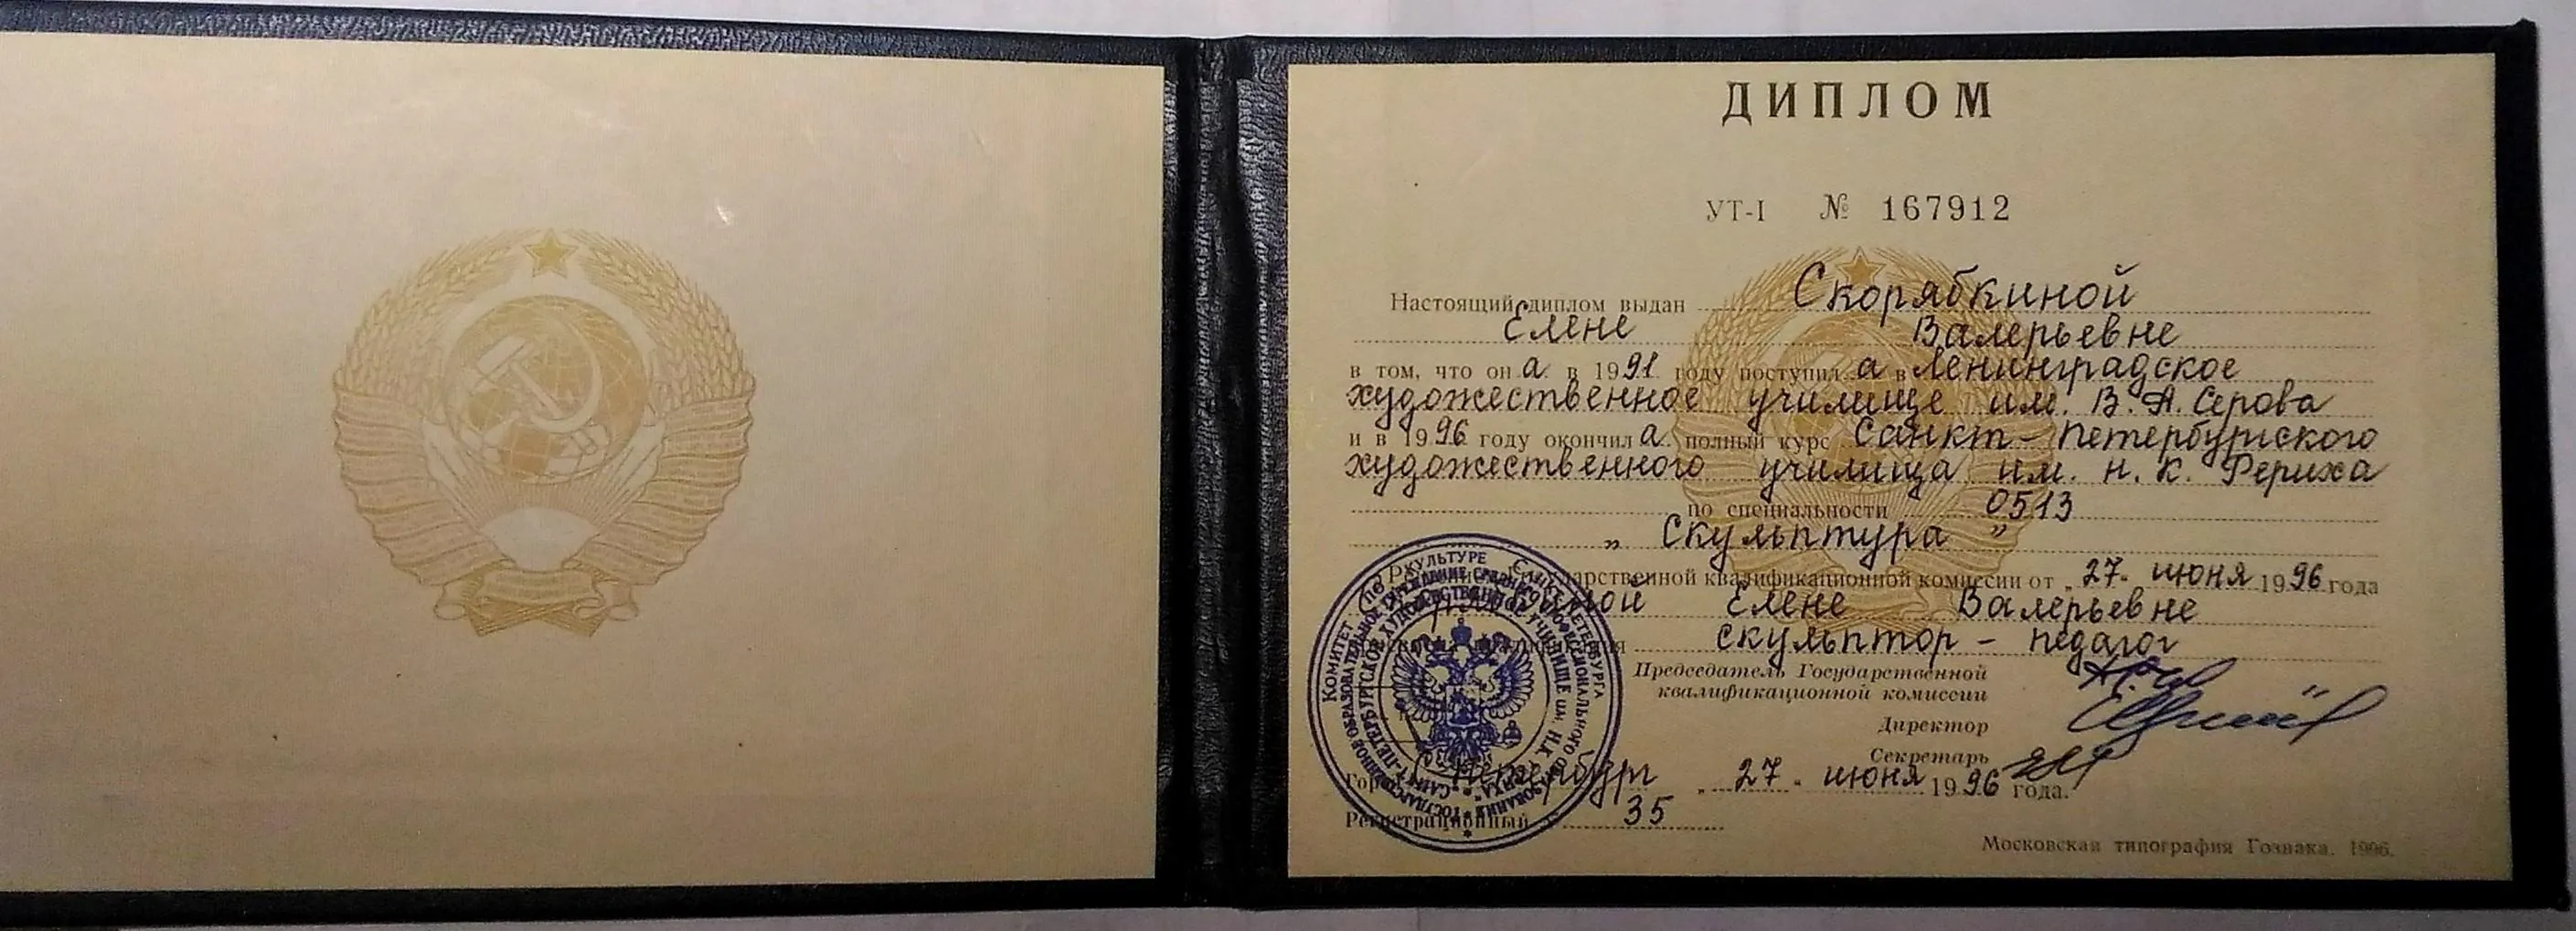 ДИПЛОМ
УТ-I № 167912
Настоящий диплом выдан Скорябкиной
Елене Валерьевне
в том, что он а в 1991 году поступил а в Ленинградское
художественное училище им. В. А. Серова
и в 1996 году окончил а полный курс Санкт-Петербургского
художественного училища им. Н. К. Рериха
по специальности 0513
„ Скульптура "
квалификационной комиссии от „27" июня 1996 года
Елене Валерьевне
скульптор - педагог
Председатель Государственной
квалификационной комиссии
Директор
Секретарь
Петербург „27" июня 1996 года.
Регистрационный 35
Московская типография Гознака. 1996.
КОМИТЕТ ПО КУЛЬТУРЕ САНКТ-ПЕТЕРБУРГА
САНКТ-ПЕТЕРБУРГСКОЕ ХУДОЖЕСТВЕННОЕ УЧИЛИЩЕ ИМ. Н.К. РЕРИХА